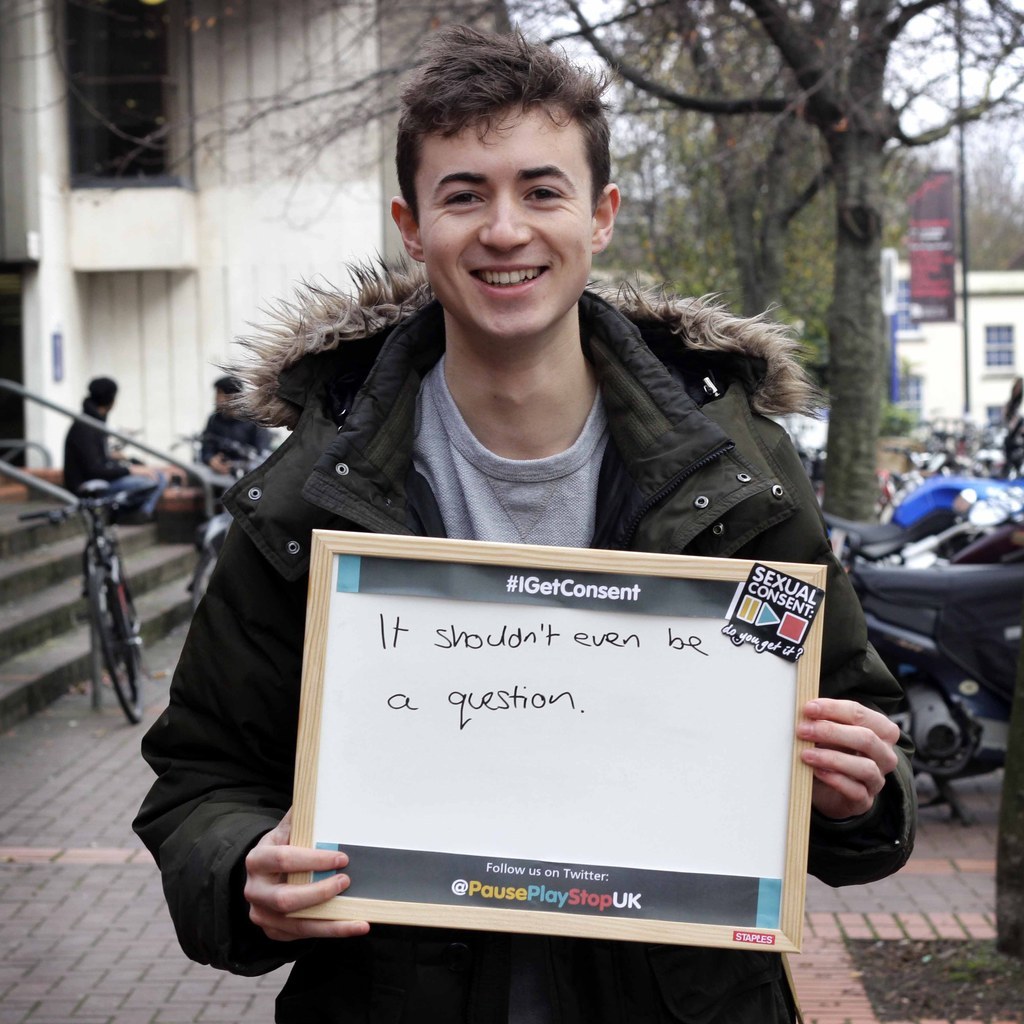 #IGetConsent
SEXUAL
CONSENT:
do you get it?
It shouldn't even be
a question.
Follow us on Twitter:
@PausePlayStopUK
STAPLES